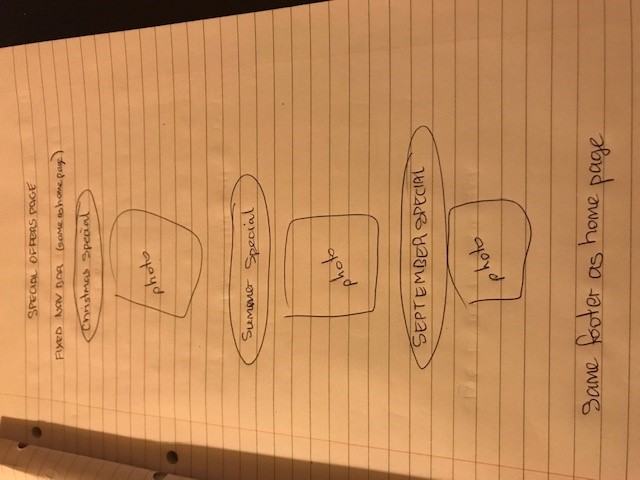 SPECIAL OFFERS PAGE
FIXED NAV BAR (same as home page)
Christmas Special
photo
Summer Special
photo
SEPTEMBER SPECIAL
photo
Same footer as home page